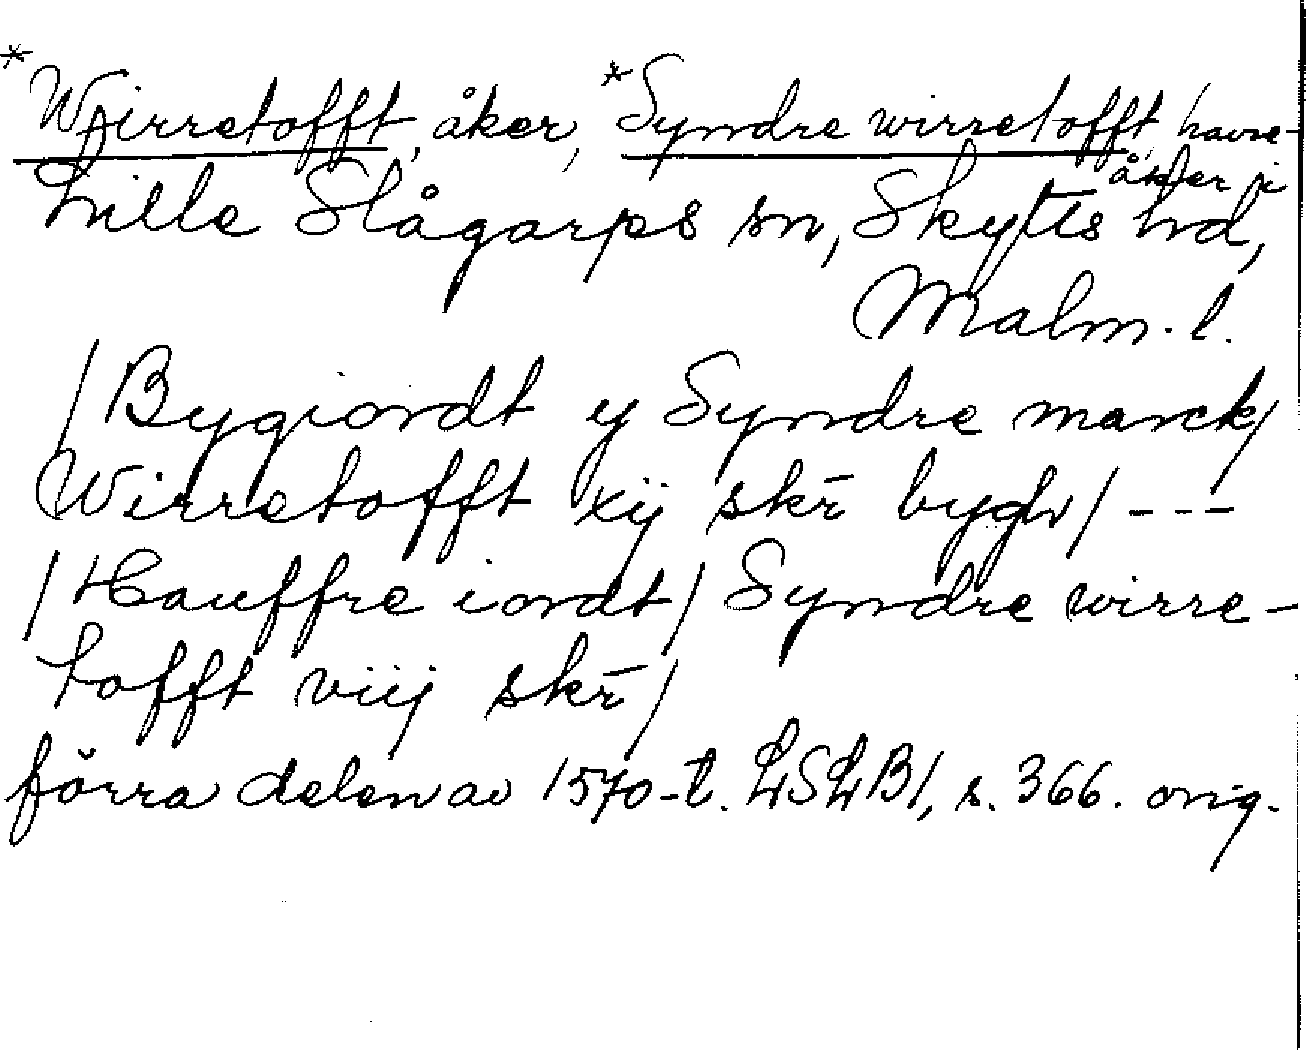 *Wirretofft, åker, *Syndre wirretofft, havre-
åker i
Lille Slågarps sn, Skytts hd,
Malm. l.
/Bygiordt y Syndre marck/
Wirretofft xij skr̄ bygh/ ---
/Hauffre iordt/ Syndre wirre-
tofft viij skr̄/
förra delen av 1570-t. LSLB1, s. 366. orig.